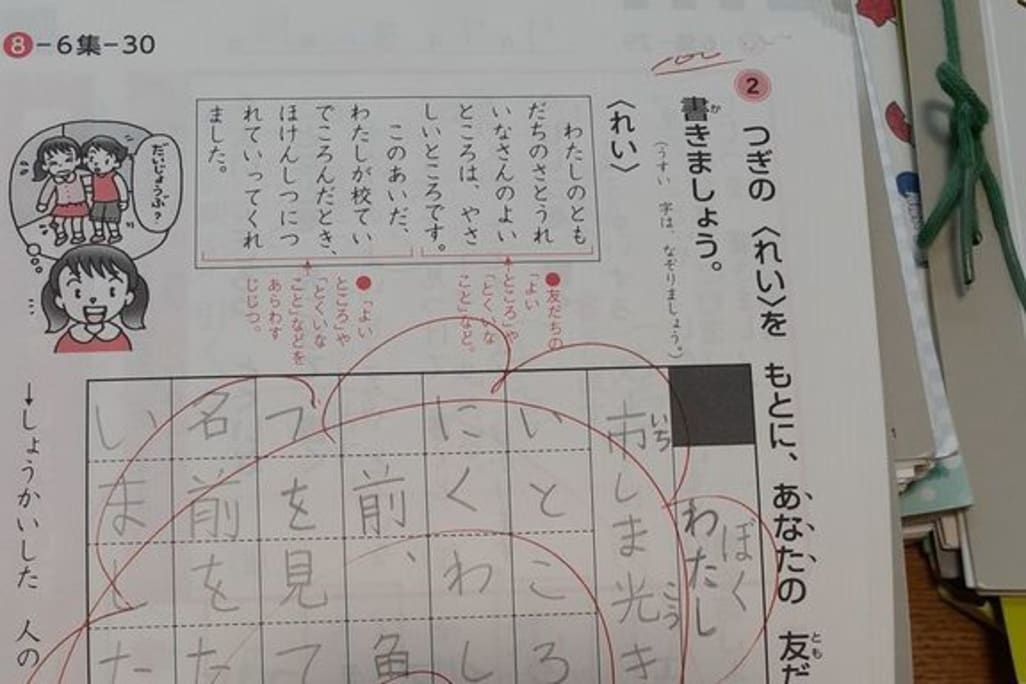 8-6集-30
2
つぎの〈れい〉を もとに、あなたの 友だ
とも
書きましょう。
か
(うすい 字は、なぞりましょう。)
〈れい〉
わたしのとも
だちのさとうれ
いなさんのよい
ところは、やさ
しいところです。
このあいだ、
わたしが校てい
でころんだとき、
ほけんしつにつ
れていってくれ
ました。
●友だちの
「よい
ところ」や
「とくいな
こと」など。
●「よい
ところ」や
「とくいな
こと」などを
あらわす
じじつ。
だいじょうぶ?
ぼく
わたし
市しま光き
いち
こう
いところ
にくわし
前、魚
づを見て
名前をた
いました
→しょうかいした 人の